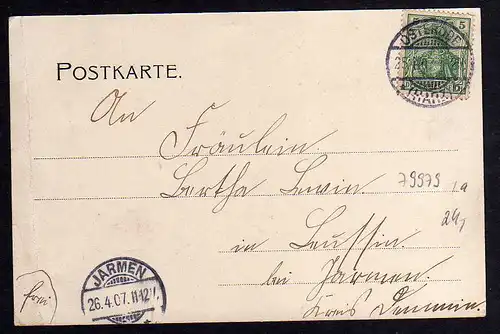 5 5
OSTERODE
(HARZ)
POSTKARTE.
An
Fräulein
Bertha Lewin
79979 1a
in Leussin 24,
bei Jarmen.
JARMEN
26.4.07.11-12V.
(frei)
Kreis Demmin